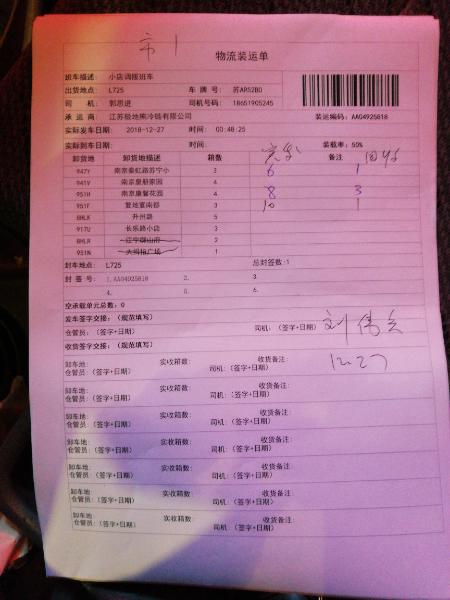 市1
物流装运单
班车描述: 小店调拨班车
出货地点: L725 车 牌 号: 苏AR52B0
司 机: 郭思进 司机号码: 18651905245
承 运 商: 江苏极地熊冷链有限公司 装运编码: AA04925818
实际发车日期: 2018-12-27 时间: 00:48:25
实际到车日期: 时间: 装载率: 50%
卸货地 卸货地描述 箱数 实发 备注 回收
947Y 南京秦虹路苏宁小 3 6 1
941V 南京皇册家园 4
951H 南京康馨花园 4 8 3
951F 夏地富南部 3 10 1
8HLR 升州路 5
917U 长乐路小店 3
8HLR 江宁御山府 2
951N 大拇指广场 1
封车地点: L725 总封签数:1
封 签 号: 1.AA04925818 2. 3.
4. 5. 6.
空承载单元总数: 0
发车签字交接: (规范填写)
仓管员: (签字+日期) 司机: (签字+日期) 刘伟
收货签字交接: (规范填写) 12.27
卸车地: 实收箱数: 收货备注:
仓管员: (签字+日期) 司机: (签字+日期)
卸车地: 实收箱数: 收货备注:
仓管员: (签字+日期) 司机: (签字+日期)
卸车地: 实收箱数: 收货备注:
仓管员: (签字+日期) 司机: (签字+日期)
卸车地: 实收箱数: 收货备注:
仓管员: (签字+日期) 司机: (签字+日期)
卸车地: 实收箱数: 收货备注:
仓管员: (签字+日期) 司机: (签字+日期)
卸车地: 实收箱数: 收货备注:
仓管员: (签字+日期) 司机: (签字+日期)
卸车地: 实收箱数: 收货备注:
仓管员: (签字+日期) 司机: (签字+日期)